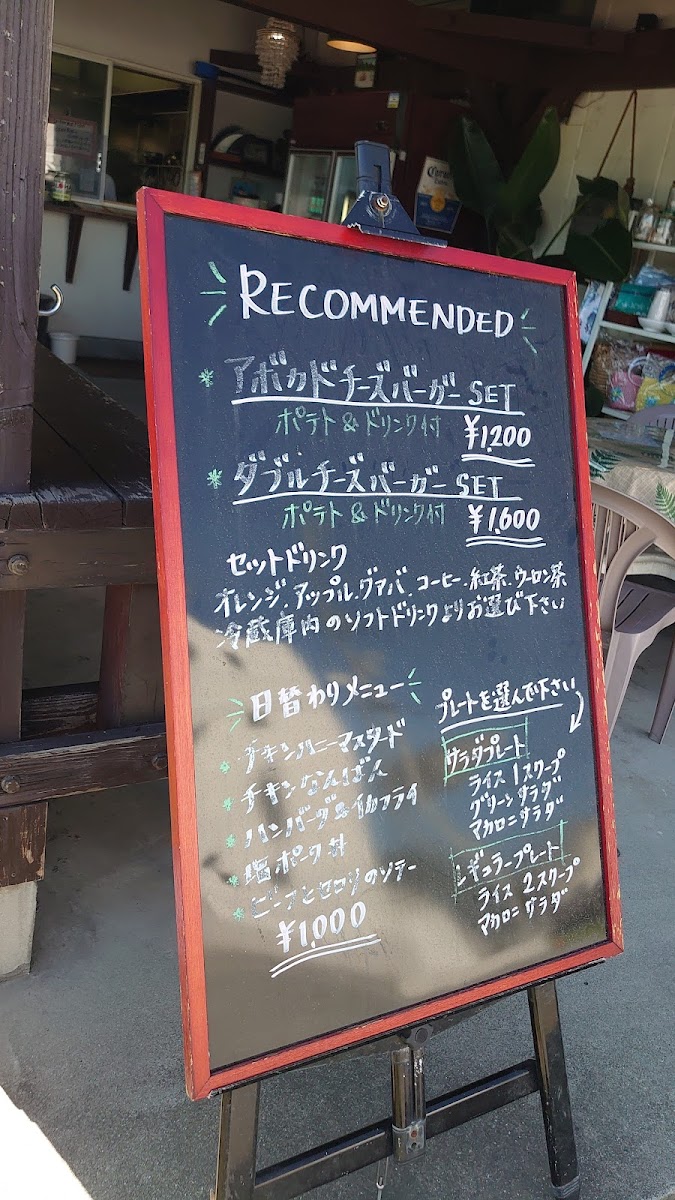 RECOMMENDED
アボカドチーズバーガー SET
ポテト&ドリンク付 ¥1,200
ダブルチーズバーガー SET
ポテト&ドリンク付 ¥1,600
セットドリンク
オレンジ.アップル.グァバ.コーヒー.紅茶.ウーロン茶
冷蔵庫内のソフトドリンクよりお選び下さい
日替わりメニュー
チキンハニーマスタード
チキンなんばん
ハンバーグ&イカフライ
塩ポーク丼
ビーフとセロリのソテー
¥1,000
プレートを選んで下さい
サラダプレート
ライス 1スクープ
グリーンサラダ
マカロニサラダ
レギュラープレート
ライス 2スクープ
マカロニサラダ
Corona